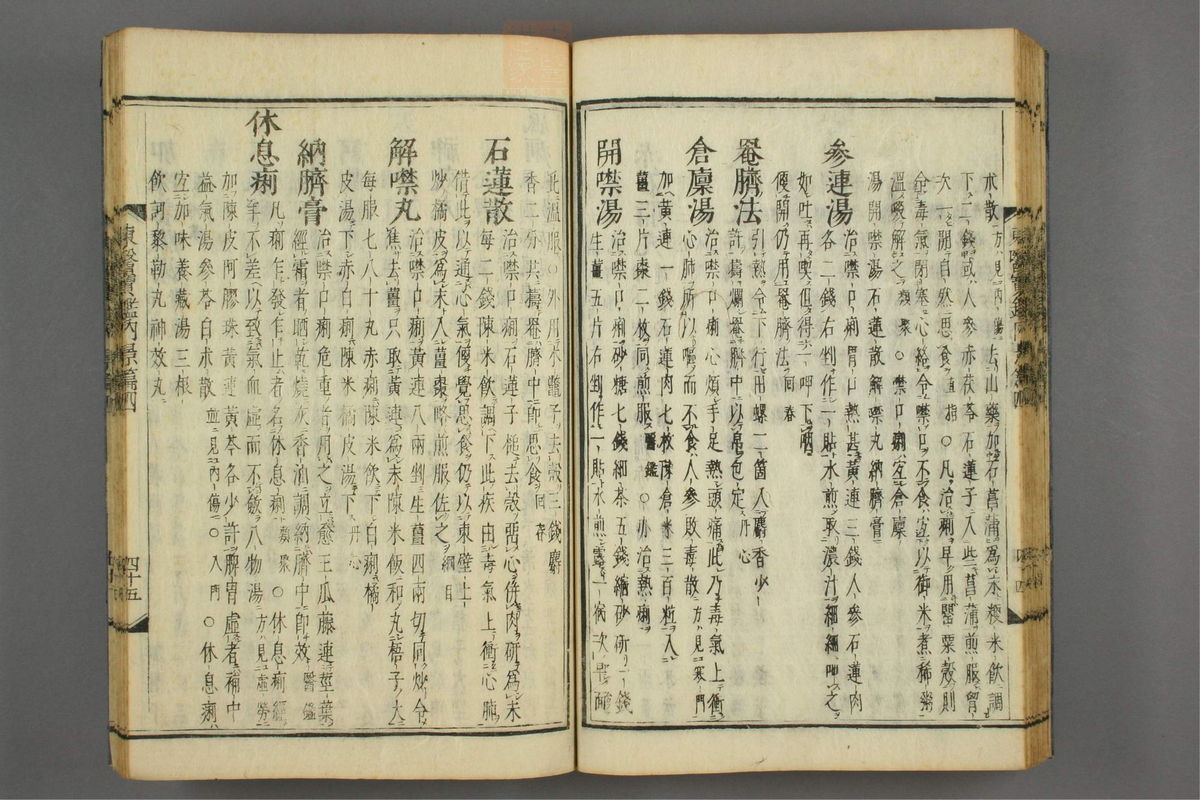 朮散方見內傷去山藥加石菖蒲爲末粳米飮調
下二錢或人參赤茯苓石蓮子入些菖蒲煎服胃
次一開自然思食直指○凡治痢早用罌粟殼則
令毒氣閉塞心絡令噤口不食宜以御米煮稀粥
溫啜解之類聚○噤口痢宜倉廩
湯開噤湯石蓮散解噤丸納臍膏
參連湯
治噤口痢胃口熱甚黃連三錢人參石蓮肉
各二錢右剉作一貼水煎取濃汁細細呷之
如吐再喫但得一呷下咽
便開仍用罨臍法回春
罨臍法
引熱令下行用螺二箇入麝香少
許擣爛罨臍中以帛包定丹心
倉廩湯
治噤口痢心煩手足熱頭痛此乃毒氣上衝
心肺所以嘔而不食人參敗毒散方見寒門
加黃連一錢石蓮肉七枚陳倉米三百粒入
薑三片棗二枚同煎服醫鑑○亦治熱痢
開噤湯
治噤口痢砂糖七錢細茶五錢縮砂研一錢
生薑五片右剉作一貼水煎露一宿次早
香二分共擣罨臍中卽思食回春
石蓮散
治噤口痢石蓮子槌去殼留心倂肉硏爲末
每二錢陳米飮調下此疾由毒氣上衝心肺
借此以通心氣便覺思食仍以東壁土
炒橘皮爲末入薑棗略煎服佐之綱目
解噤丸
治噤口痢黃連八兩剉生薑四兩切同炒令
焦去薑只取黃連爲末陳米飯和丸梧子大
每服七八十丸赤痢陳米飮下白痢橘
皮湯下赤白痢陳米橘皮湯下丹心
納臍膏
治噤口痢危重者用之立愈王瓜藤連莖葉
經霜者晒乾燒灰香油調納臍中卽效醫鑑
休息痢
凡痢乍發乍止者名休息痢類聚○休息痢經
年不差以致氣血虛而不斂八物湯方見虛勞
加陳皮阿膠珠黃連黃芩各少許脾胃虛者補中
益氣湯參苓白朮散並見內傷○入門○休息痢
宜加味養藏湯三根
飮訶黎勒丸神效丸
東醫寶鑑內景篇四
四十五